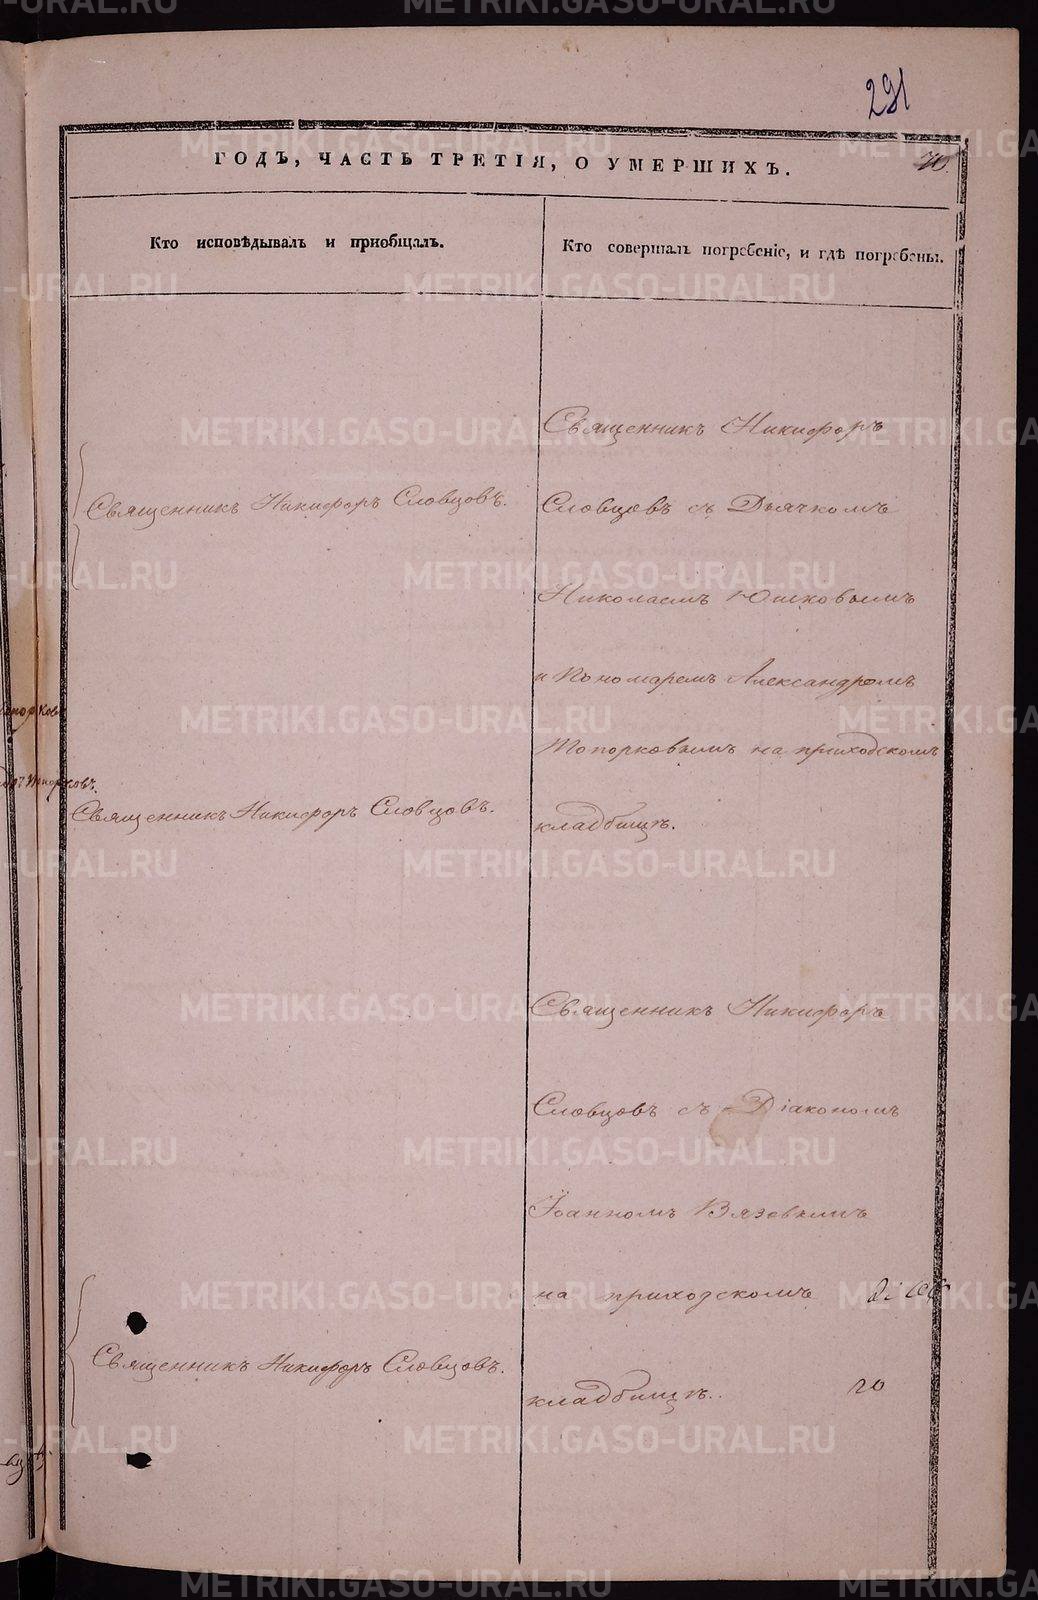 291
ГОДЪ, ЧАСТЬ ТРЕТІЯ, О УМЕРШИХЪ.
Кто исповѣдывалъ и пріобщалъ.
Кто совершалъ погребеніе, и гдѣ погребены.
Священникъ Никифоръ Словцовъ.
Священникъ Никифоръ Словцовъ.
Священникъ Никифоръ Словцовъ.
Священникъ Никифоръ
Словцовъ съ Дьячкомъ
Николаемъ Юшковымъ
и Пономаремъ Александромъ
Топорковымъ на приходскомъ
кладбищѣ.
Священникъ Никифоръ
Словцовъ съ Діакономъ
Іоанномъ Вязовымъ
на приходскомъ
кладбищѣ.
го
METRIKI.GASO-URAL.RU